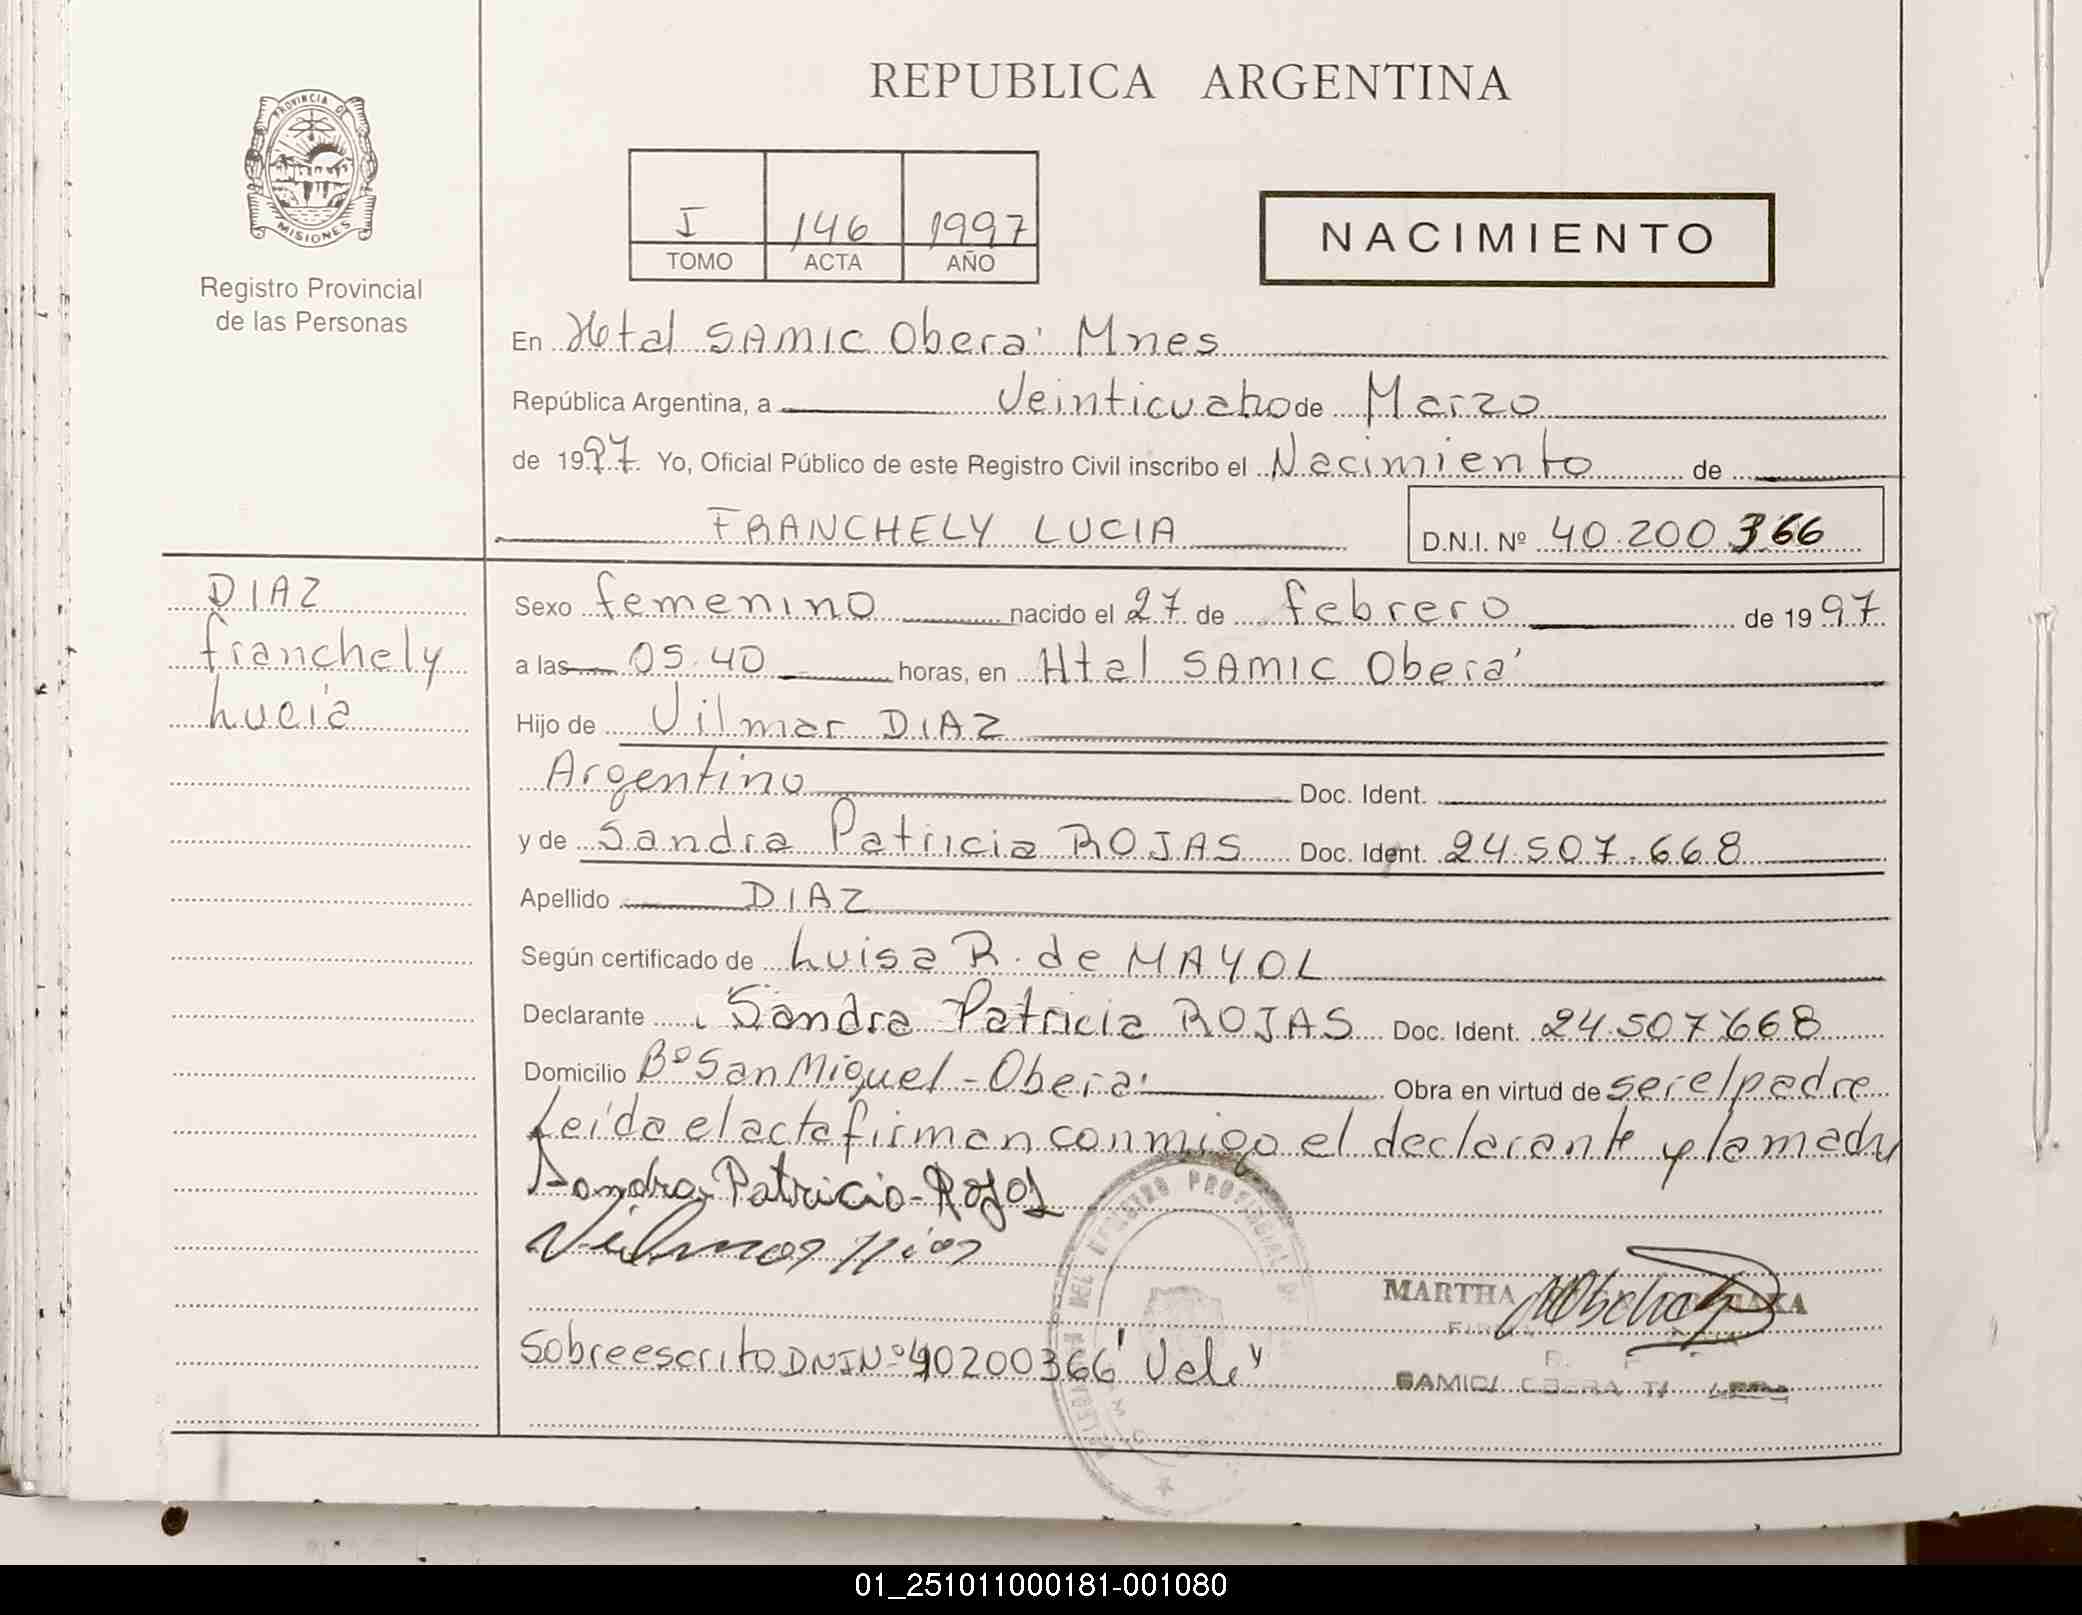 REPUBLICA ARGENTINA
PROVINCIA DE
MISIONES
Registro Provincial
de las Personas
I 146 1997
TOMO ACTA AÑO
NACIMIENTO
En Hotal SAMIC Oberá Mnes
República Argentina, a Veinticuatro de Marzo
de 1997. Yo, Oficial Público de este Registro Civil inscribo el Nacimiento de
FRANCHELY LUCIA D.N.I. Nº 40.200.366
DIAZ
Franchely
Lucia
Sexo femenino nacido el 27 de febrero de 1997
a las 05.40 horas, en Htal SAMIC Oberá
Hijo de Vilmar DIAZ
Argentino Doc. Ident.
y de Sandra Patricia ROJAS Doc. Ident. 24.507.668
Apellido DIAZ
Según certificado de Luisa R. de MAYOL
Declarante Sandra Patricia ROJAS Doc. Ident. 24.507.668
Domicilio Bº San Miguel - Oberá Obra en virtud de ser el padre
Leída el acta firman conmigo el declarante y la madre
Sandra Patricia Rojas
Vilmar Dias
MARTHA
Sobreescrito DNI Nº 40200366 "Vale"
SAMIC/ OBERA
01_251011000181-001080